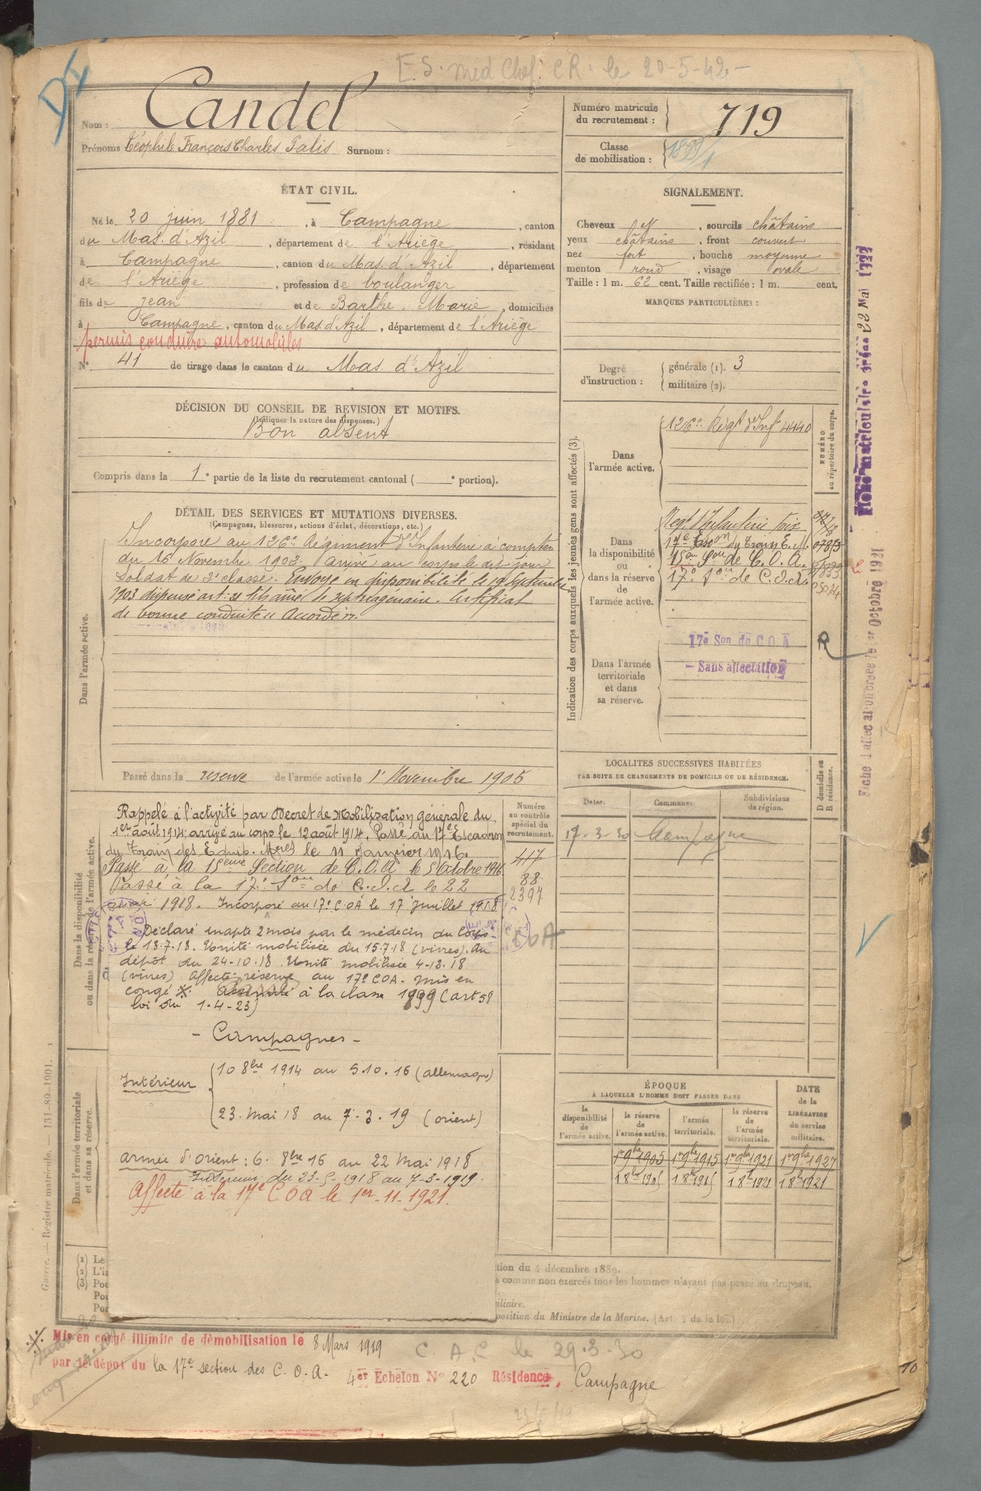 E.S. Méd Chef. CR. le 20-5-42-
Nom : Candel
Prénoms Théophile François Charles Palis Surnom :
Numéro matricule du recrutement : 719
Classe de mobilisation :
ÉTAT CIVIL.
Né le 20 juin 1881, à Campagne, canton
du Mas d'Azil, département de l'Ariège, résidant
à Campagne, canton du Mas d'Azil, département
de l'Ariège, profession de boulanger
fils de Jean et de Barthe Marie, domiciliés
à Campagne, canton du Mas d'Azil, département de l'Ariège
permis conduire automobiles
N° 41 de tirage dans le canton du Mas d'Azil
SIGNALEMENT.
Cheveux et, sourcils châtains
yeux châtains, front couvert
nez fort, bouche moyenne
menton rond, visage ovale
Taille : 1 m. 62 cent. Taille rectifiée : 1 m. cent.
MARQUES PARTICULIÈRES :
Degré d'instruction : générale (1). 3
militaire (2).
DÉCISION DU CONSEIL DE REVISION ET MOTIFS.
(Indiquer la nature des dispenses.)
Bon absent
Compris dans la 1e partie de la liste du recrutement cantonal ( e portion).
DÉTAIL DES SERVICES ET MUTATIONS DIVERSES.
(Campagnes, blessures, actions d'éclat, décorations, etc.)
Dans l'armée active.
Incorporé au 126e Régiment d'Infanterie à compter
du 16 Novembre 1902. Arrivé au corps le dit jour
soldat de 2e classe. Envoyé en disponibilité le 19 Septembre
1903
de bonne conduite accordé.
Passé dans la réserve de l'armée active le 1r Novembre 1905
Indication des corps auxquels les jeunes gens sont affectés (3).
Dans l'armée active.
126e Régt d'Inf 4440
NUMÉRO au répertoire du corps.
Dans la disponibilité ou dans la réserve de l'armée active.
Régt d'Infanterie Foix
17e Escon du Train E. M.
15e Son de C.O.A.
17e Son de C.O.A.
Dans l'armée territoriale et dans sa réserve.
17e Son de C O A
- Sans affectation
R
LOCALITÉS SUCCESSIVES HABITÉES
PAR SUITE DE CHANGEMENTS DE DOMICILE OU DE RÉSIDENCE.
Dates. Communes. Subdivisions de région. D domicile ou R résidence.
17-3-30 Campagne
Dans la disponibilité ou dans la réserve de l'armée active.
Numéro au contrôle spécial du recrutement.
Rappelé à l'activité par Décret de Mobilisation générale du
1er août 1914 arrivé au corps le 12 août 1914. Passé au 17e Escadron
du Train des Equip. Mres le 11 Janvier 1916.
Passé à la 15eme Section de C.O.A. le 5 Octobre 1916
Passé à la 17e Son de C.O.A le 22
1918. Incorporé au 17e COA le 17 Juillet 1918
417
88
2397
Déclaré inapte 2 mois par le médecin du Corps
le 13.7.18. Unité mobilisée du 15.7.18 (vivres). Au
dépôt du 24-10.18. Unité mobilisée 4-12.18
(vivres) affecté réserve au 17e COA. Mis en
congé à la classe 1899 (art 58
loi du 1-4-23)
- Campagnes -
Intérieur
10 8bre 1914 au 5 10.16 (allemagne)
23. mai 18 au 7-3.19 (orient)
armée d'Orient : 6. 8bre 16 au 22 Mai 1918
Intérieur du 23-5-1918 au 7-3-1919.
Affecté à la 17e COA le 1er-11.1921.
Dans l'armée territoriale et dans sa réserve.
ÉPOQUE
À LAQUELLE L'HOMME DOIT PASSER DANS
la disponibilité de l'armée active. la réserve de l'armée active. l'armée territoriale. la réserve de l'armée territoriale.
DATE de la LIBÉRATION du service militaire.
1r 9bre 1905 1r 9bre 1915 1r 9bre 1921 1r 9bre 1927
tion du 4 décembre 1889.
à comme non exercés tous les hommes n'ayant pas passé au drapeau.
position du Ministre de la Marine. (Art. de la loi)
(1) Le
(2) L'is
(3) Pou
Pou
Por
Guerre. — Registre matricule. 131-89-1901.
Fiche matriculaire 22 Mai 1922
Octobre 1921
Mis en congé illimité de démobilisation le 8 Mars 1919
par le dépôt du la 17e section des C.O.A. 4er Echelon N° 220 Résidence, Campagne
C. A. C le 29-3-30